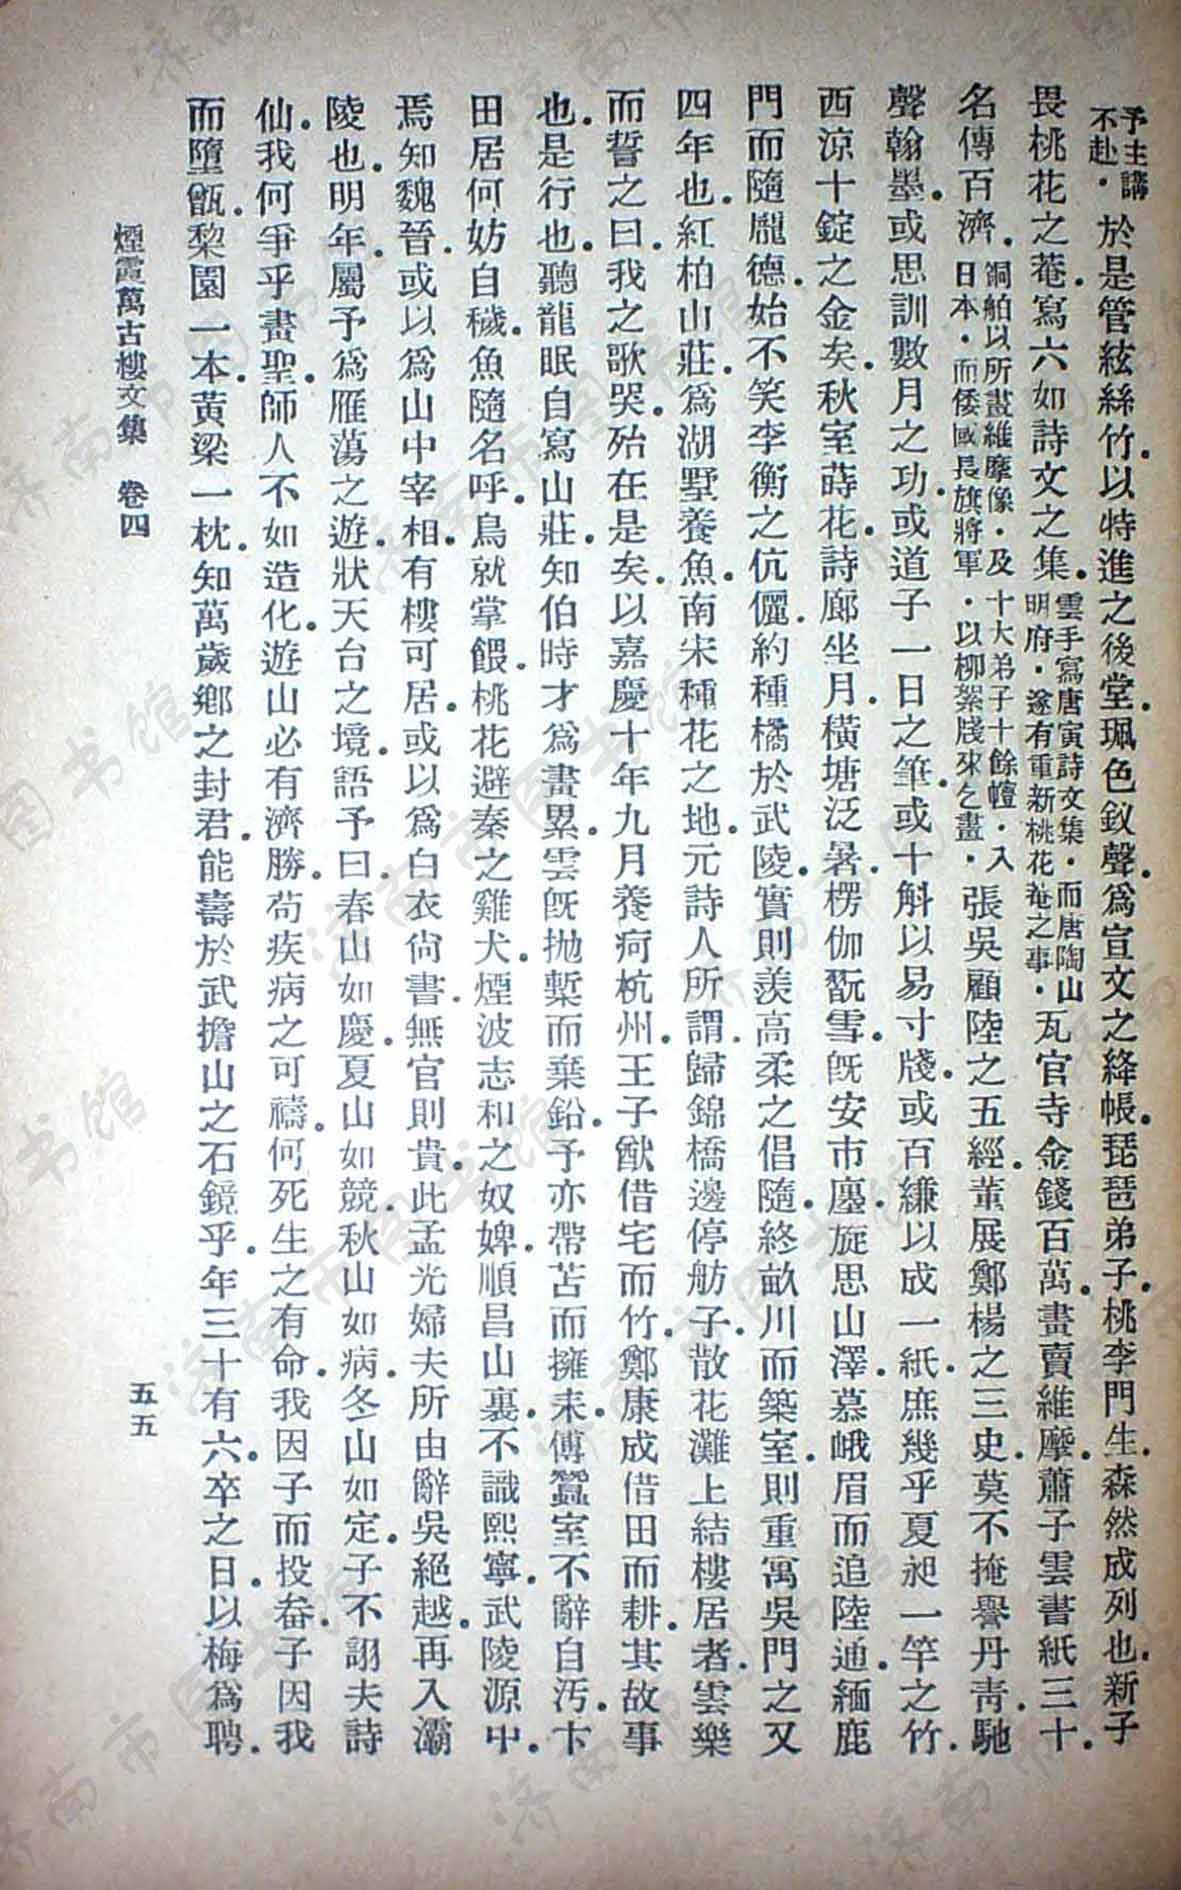 予主講不赴．於是管絃絲竹．以特進之後堂．珮色釵聲．爲宣文之絳帳．琵琶弟子．桃李門生．森然成列也．新子
畏桃花之菴．寫六如詩文之集．雲手寫唐寅詩文集．而唐陶山明府．遂有重新桃花菴之事．瓦官寺金錢百萬．畫賣維摩．蕭子雲書紙三十．
名傳百濟．洞舶以所畫維摩像．及十大弟子十餘幢．入日本．而倭國長旗將軍．以柳絮牋來乞畫．張吳顧陸之五經．董展鄭楊之三史．莫不掩譽丹靑．馳
聲翰墨．或思訓數月之功．或道子一日之筆．或十斛以易寸牋．或百縑以成一紙．庶幾乎夏昶一竿之竹．
西涼十錠之金矣．秋室蒔花．詩廊坐月．橫塘泛暑．楞伽翫雪．旣安市廛．旋思山澤．慕峨眉而追陸通．緬鹿
門而隨龐德．始不笑李衡之伉儷．約種橘於武陵．實則羨高柔之倡隨．終畝川而築室．則重寓吳門之又
四年也．紅柏山莊．爲湖墅養魚．南宋種花之地．元詩人所謂．歸錦橋邊停舫子．散花灘上結樓居者．雲樂
而誓之曰．我之歌哭．殆在是矣．以嘉慶十年九月養疴杭州．王子猷借宅而竹．鄭康成借田而耕．其故事
也．是行也．聽龍眠自寫山莊．知伯時才爲畫累．雲旣抛槧而棄鉛．予亦帶苫而擁耒．傅蠶室．不辭自汚．卞
田居何妨自穢．魚隨名呼．鳥就掌餵．桃花避秦之雞犬．煙波志和之奴婢．順昌山裏．不識熙寧．武陵源中．
焉知魏晉．或以爲山中宰相．有樓可居．或以爲白衣尙書．無官則貴．此孟光婦夫所由辭吳絕越．再入灞
陵也．明年．屬予爲雁蕩之遊．狀天台之境．語予曰．春山如慶．夏山如競．秋山如病．冬山如定．子不詡夫詩
仙．我何爭乎畫聖．師人不如造化．遊山必有濟勝．苟疾病之可禱．何死生之有命．我因子而投畚．子因我
而墮甑．棃園一本．黃粱一枕．知萬歲鄕之封君．能壽於武擔山之石鏡乎．年三十有六．卒之日．以梅爲聘．
煙霞萬古樓文集　卷四
五五